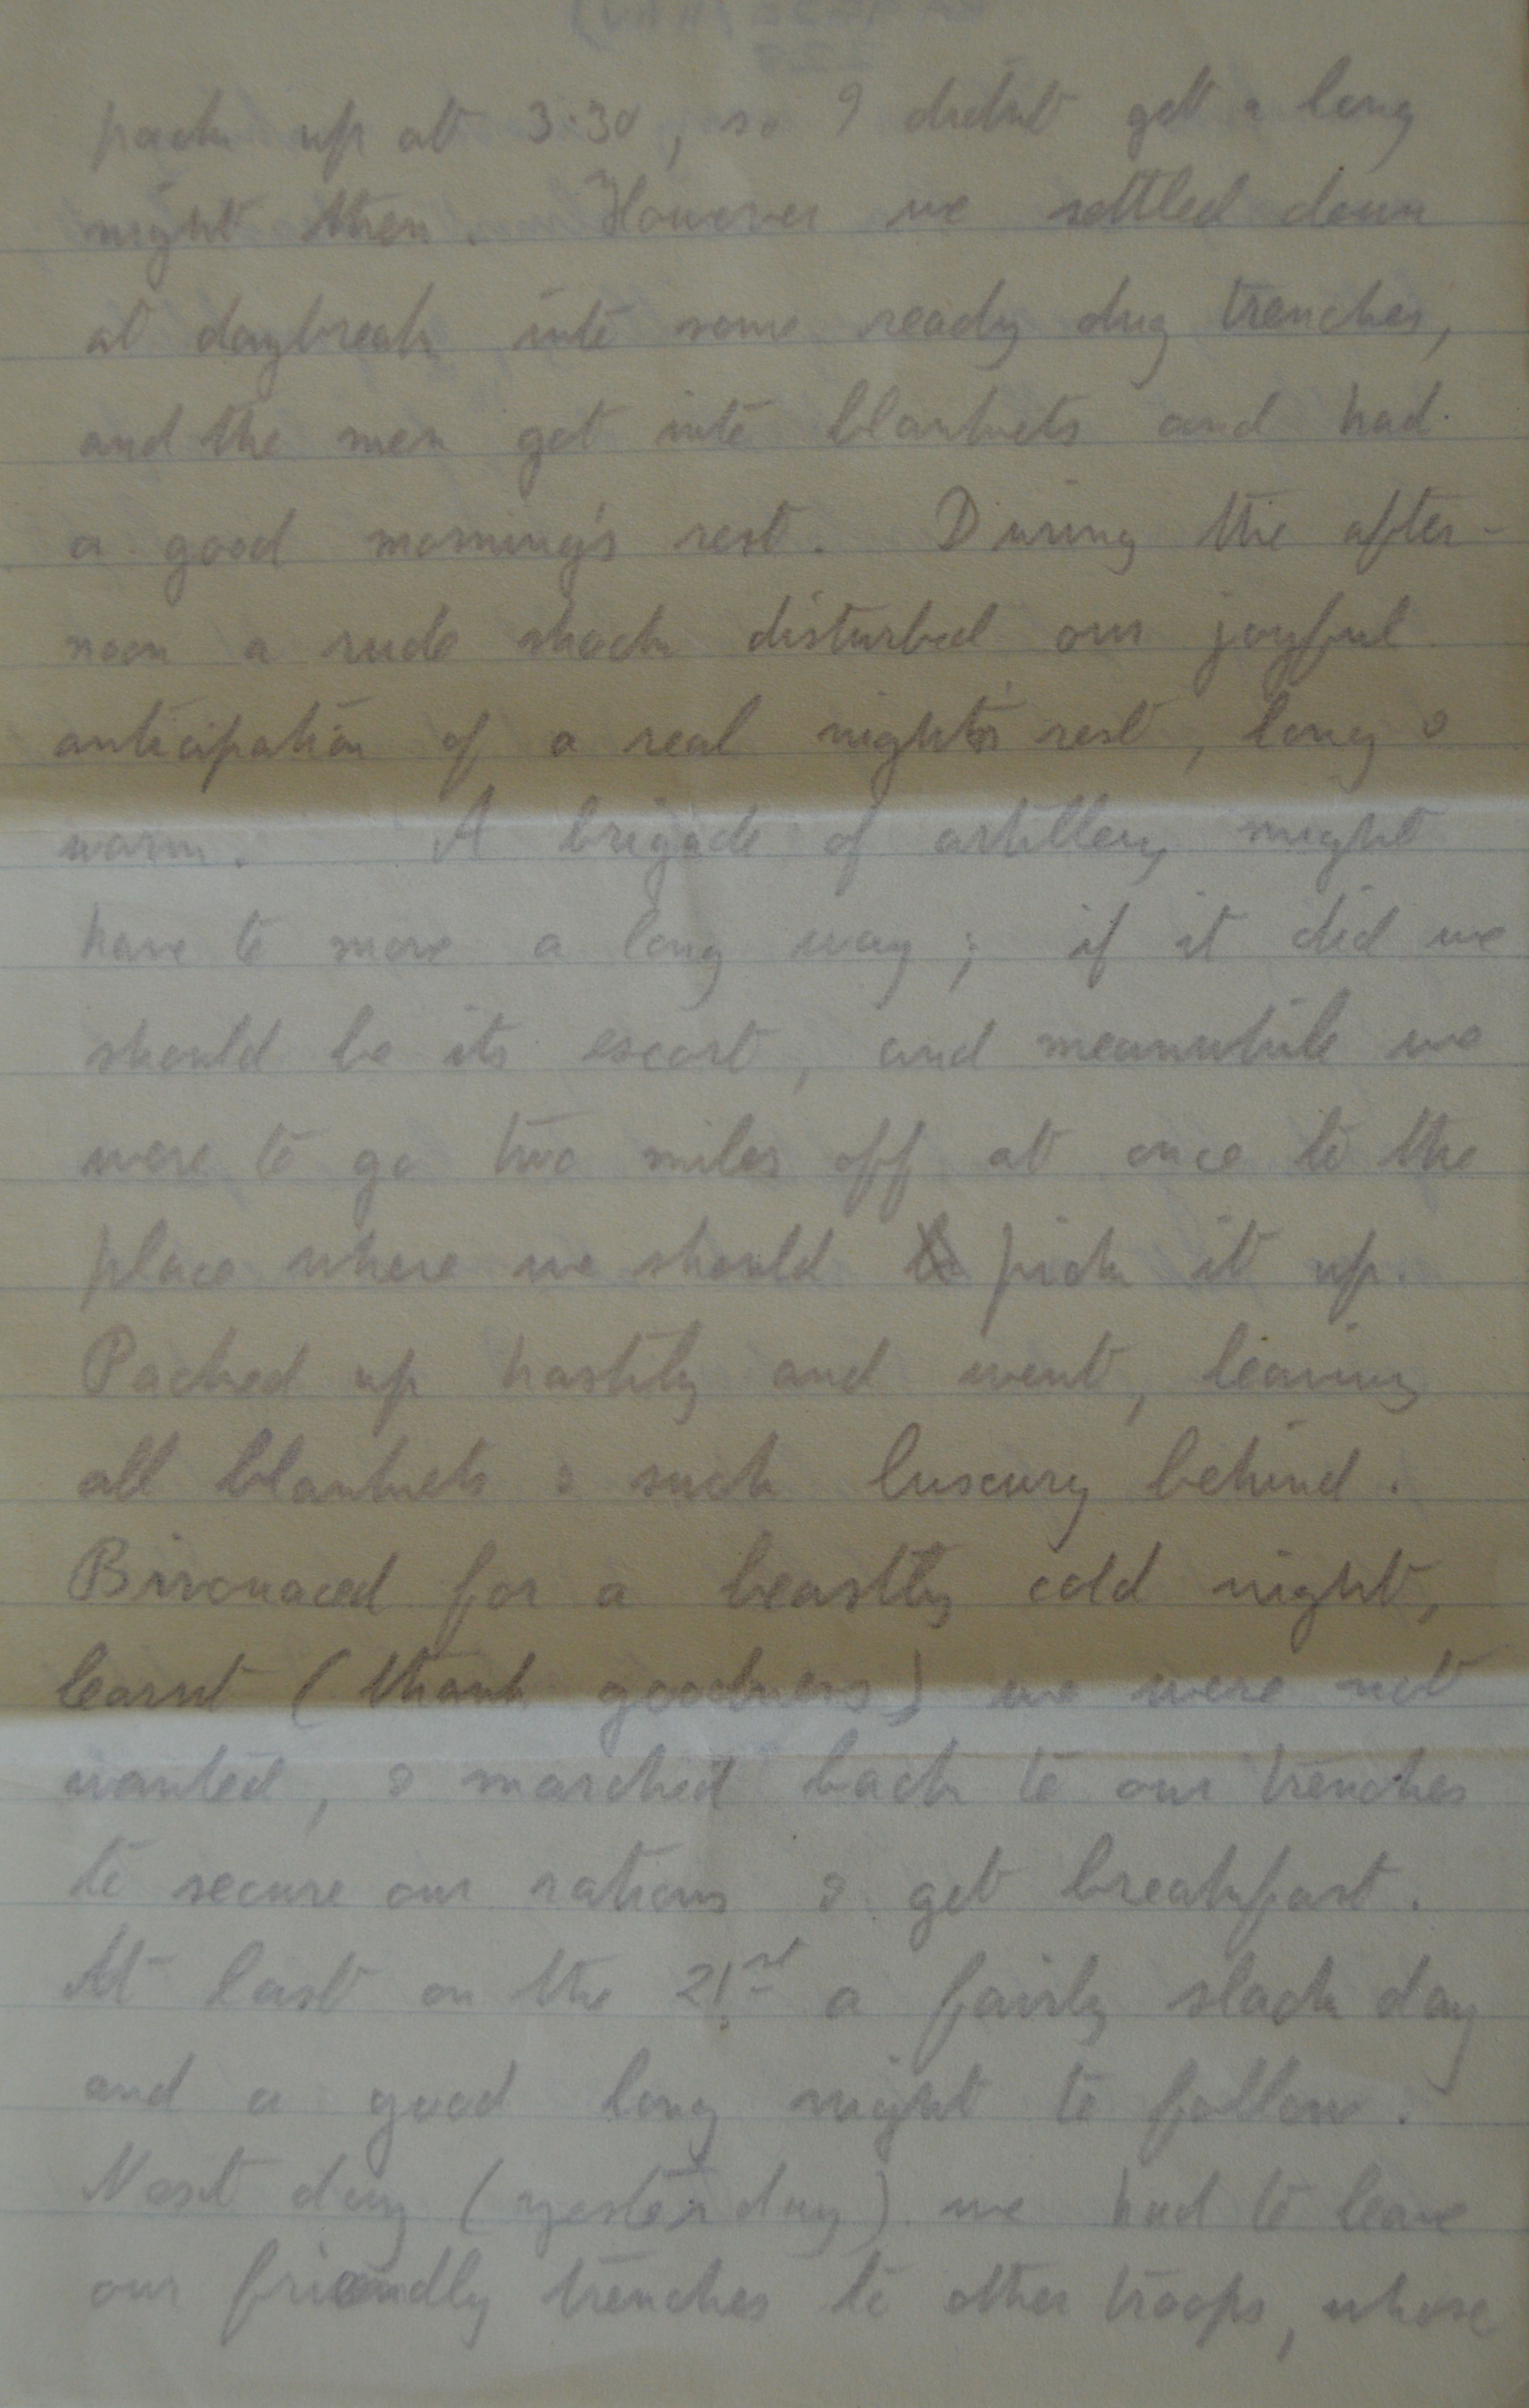 pack up at 3.30, so I didn't get a long
night then. However we settled down
at daybreak into some ready dug trenches,
and the men got into blankets and had
a good morning's rest. During the after-
noon a rude shock disturbed our joyful
anticipation of a real night's rest, long &
warm. A brigade of artillery might
have to move a long way; if it did we
should be its escort, and meanwhile we
were to go two miles off at once to the
place where we should pick it up.
Packed up hastily and went, leaving
all blankets & such luxury behind.
Bivouaced for a beastly cold night,
learnt (thank goodness) we were not
wanted, & marched back to our trenches
to secure our rations & get breakfast.
At last on the 21st a fairly slack day
and a good long night to follow.
Next day (yesterday) we had to leave
our friendly trenches to other troops, whose